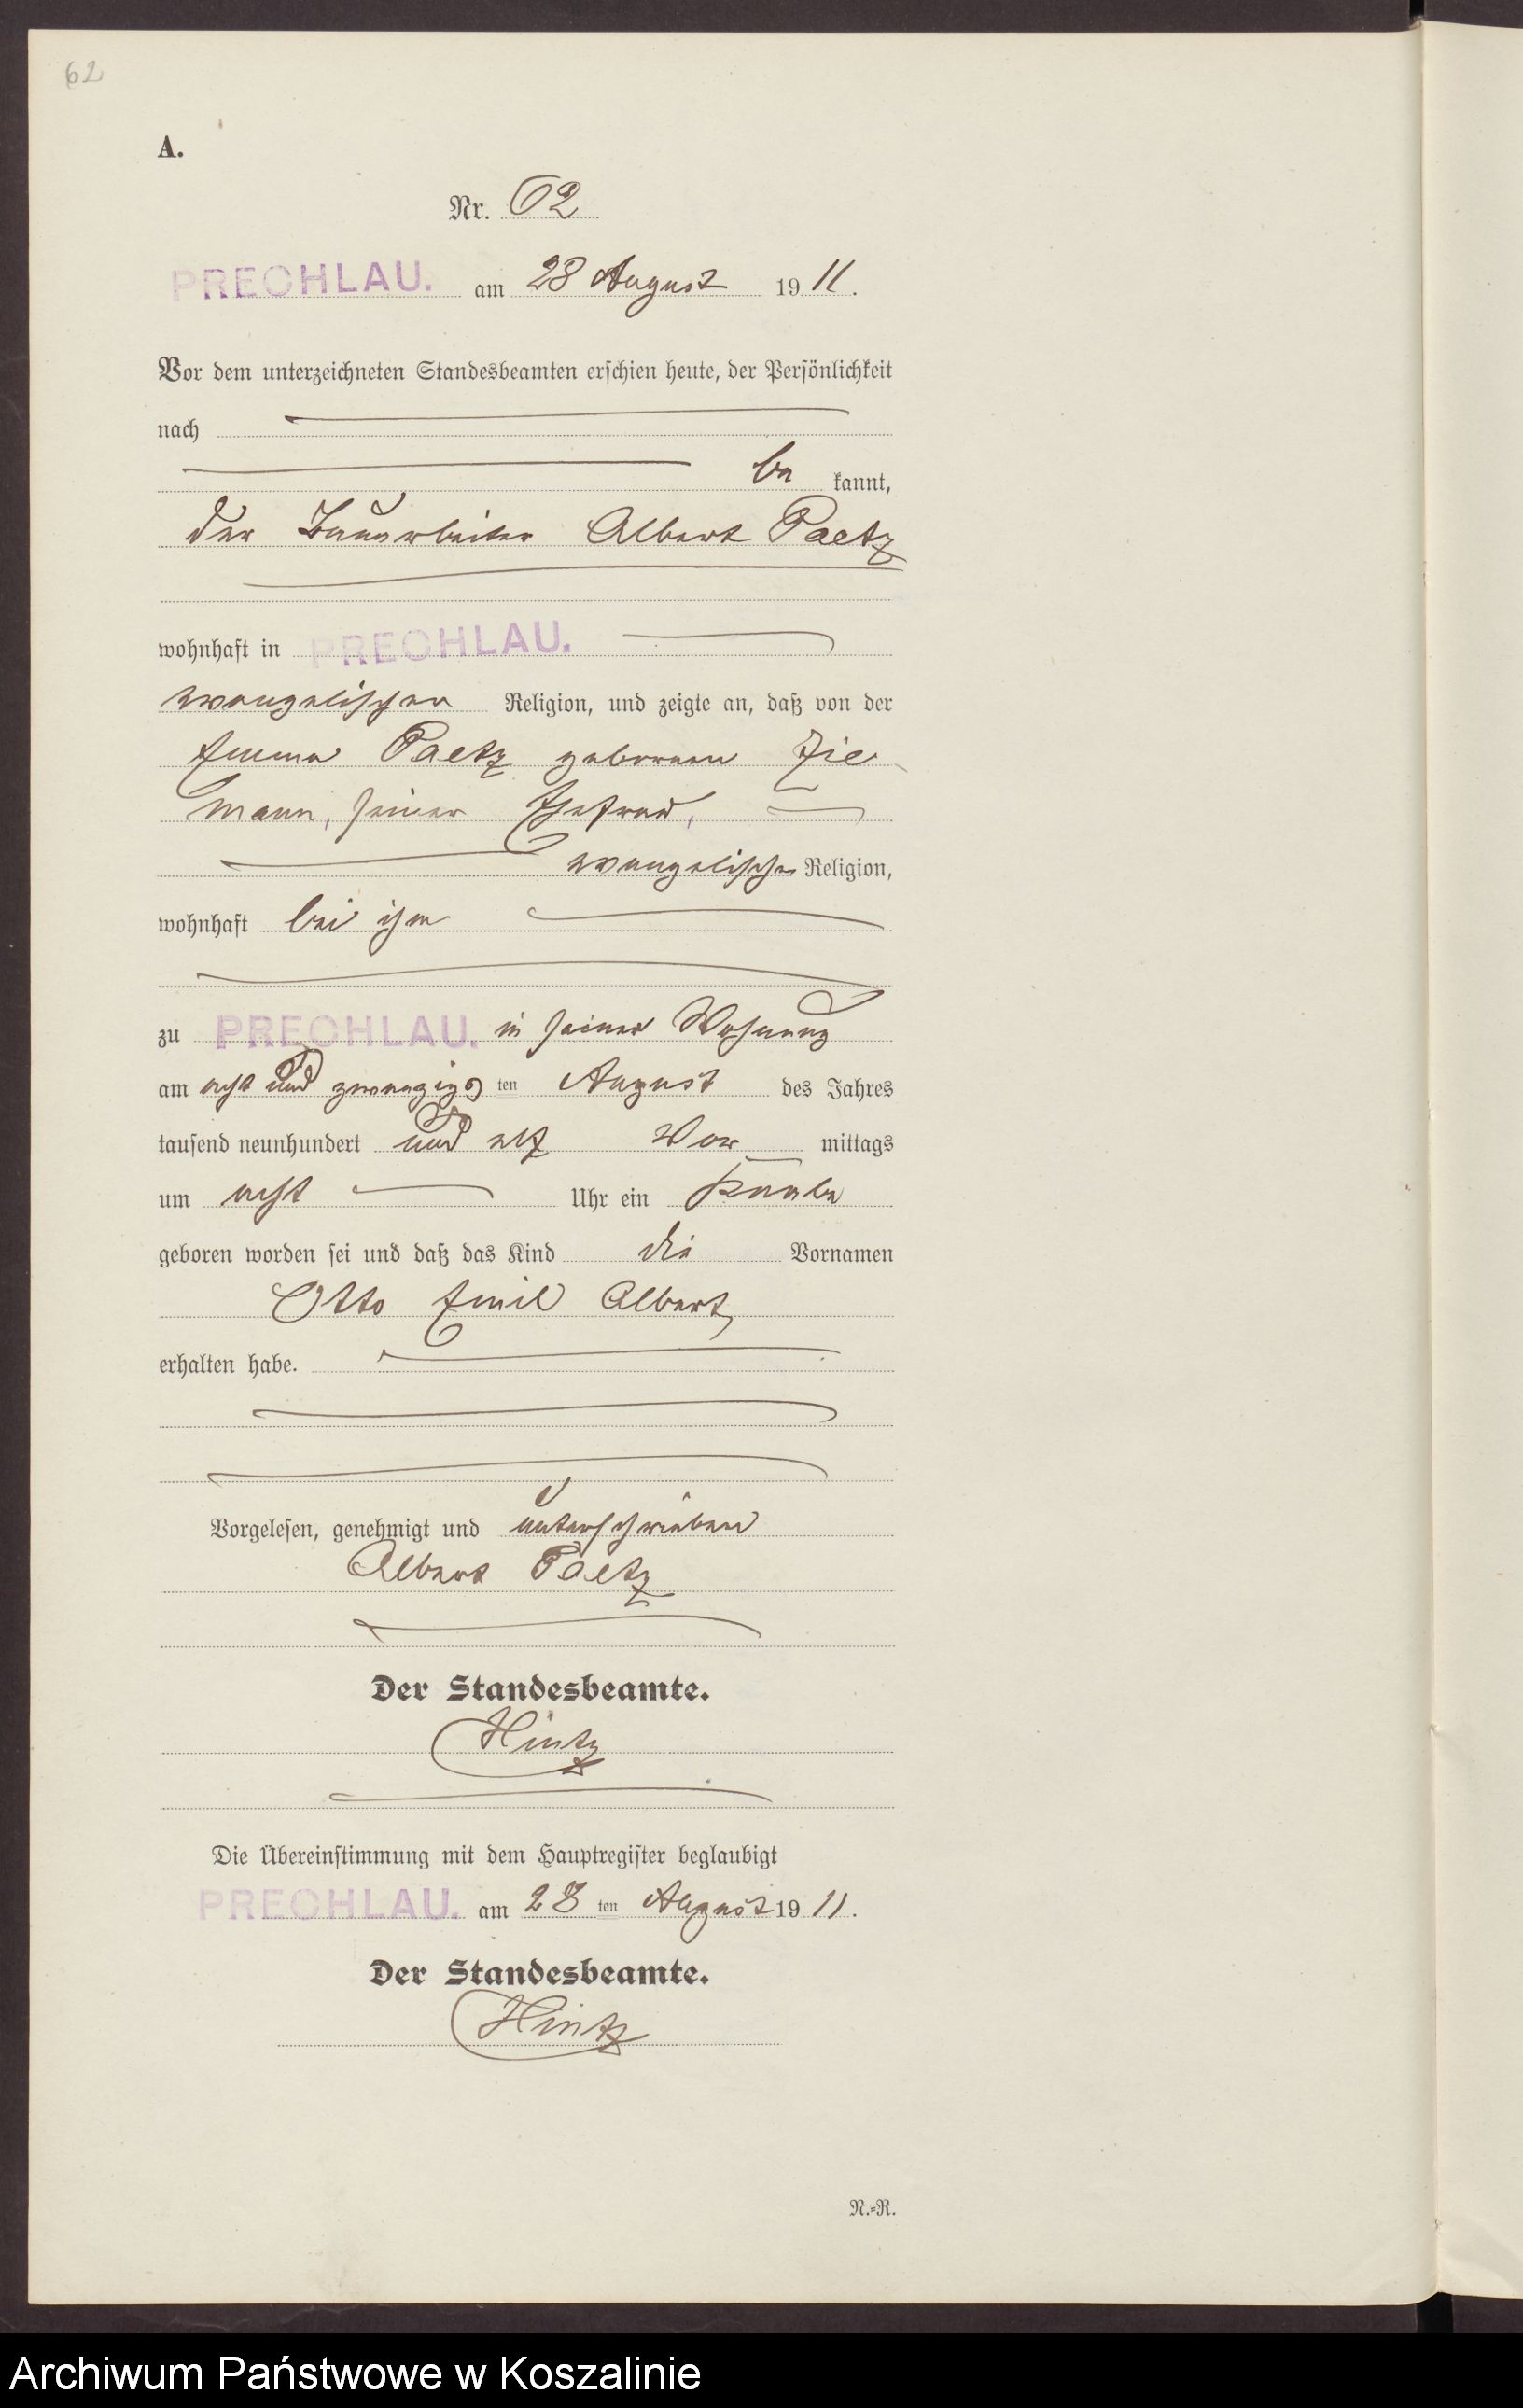 62
A.
Nr. 62
PRECHLAU. am 28 August 1911.
Vor dem unterzeichneten Standesbeamten erschien heute, der Persönlichkeit
nach
be kannt,
der Bauarbeiter Albert Paetz
wohnhaft in PRECHLAU.
evangelischer Religion, und zeigte an, daß von der
Emma Paetz geborenen Zie
mann, seiner Ehefrau,
evangelischer Religion,
wohnhaft bei ihm
zu PRECHLAU. in seiner Wohnung
am acht und zwanzigs ten August des Jahres
tausend neunhundert und elf Vor mittags
um acht Uhr ein Knabe
geboren worden sei und daß das Kind die Vornamen
Otto Emil Albert
erhalten habe.
Vorgelesen, genehmigt und unterschrieben
Albert Paetz
Der Standesbeamte.
Hintz
Die Übereinstimmung mit dem Hauptregister beglaubigt
PRECHLAU. am 28 ten August 1911.
Der Standesbeamte.
Hintz
N.=R.
Archiwum Państwowe w Koszalinie